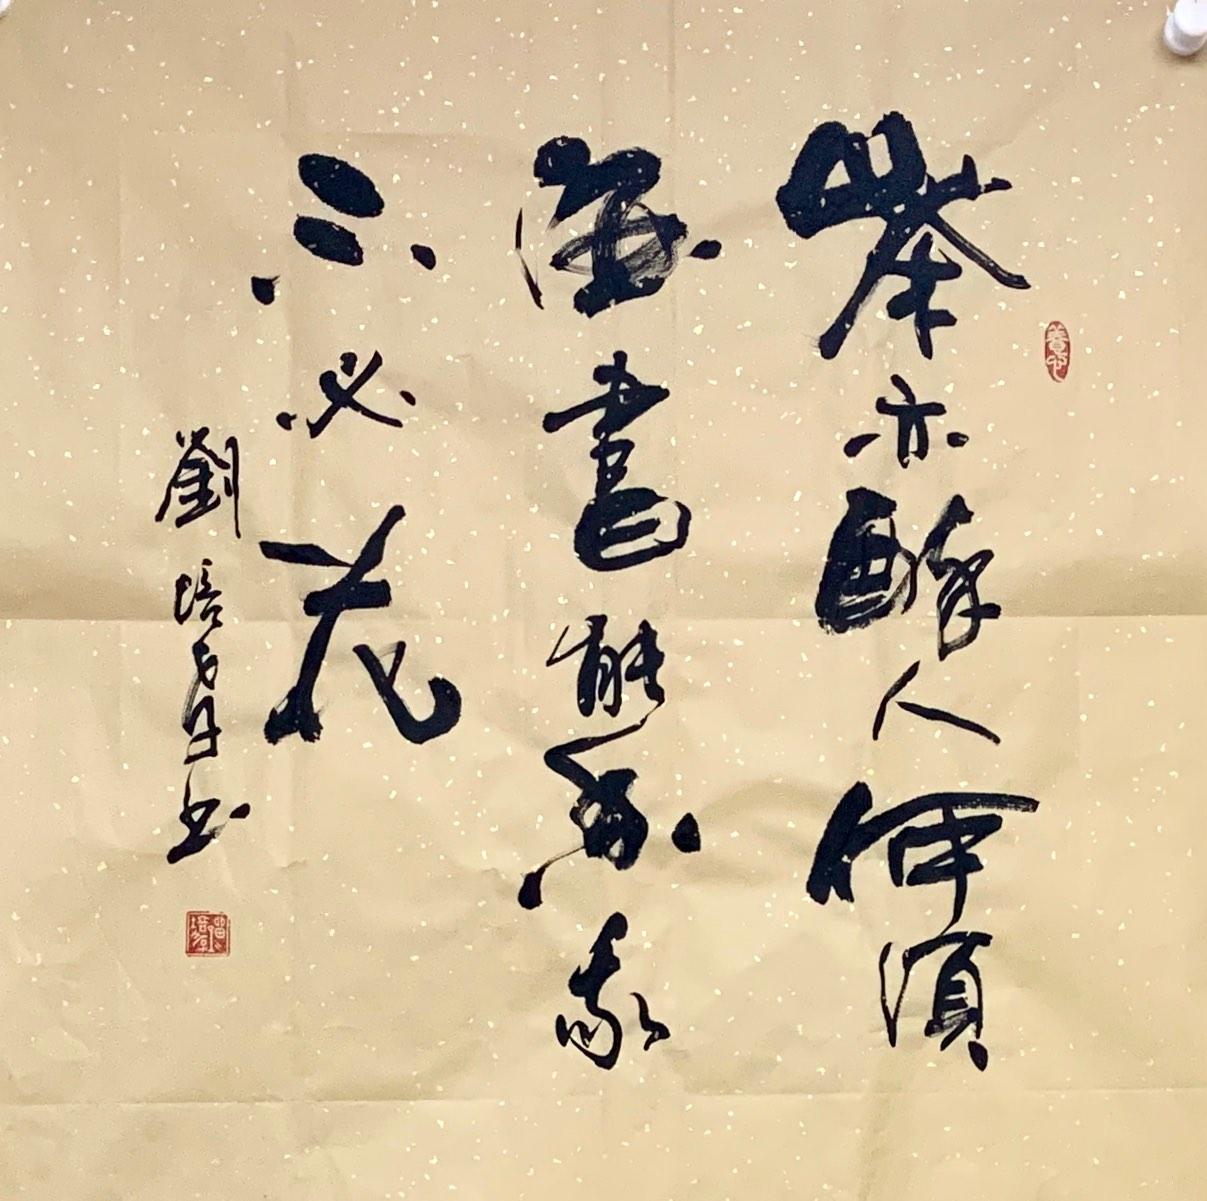 茶亦醉人何須
酒書能香我
不必花
劉培书